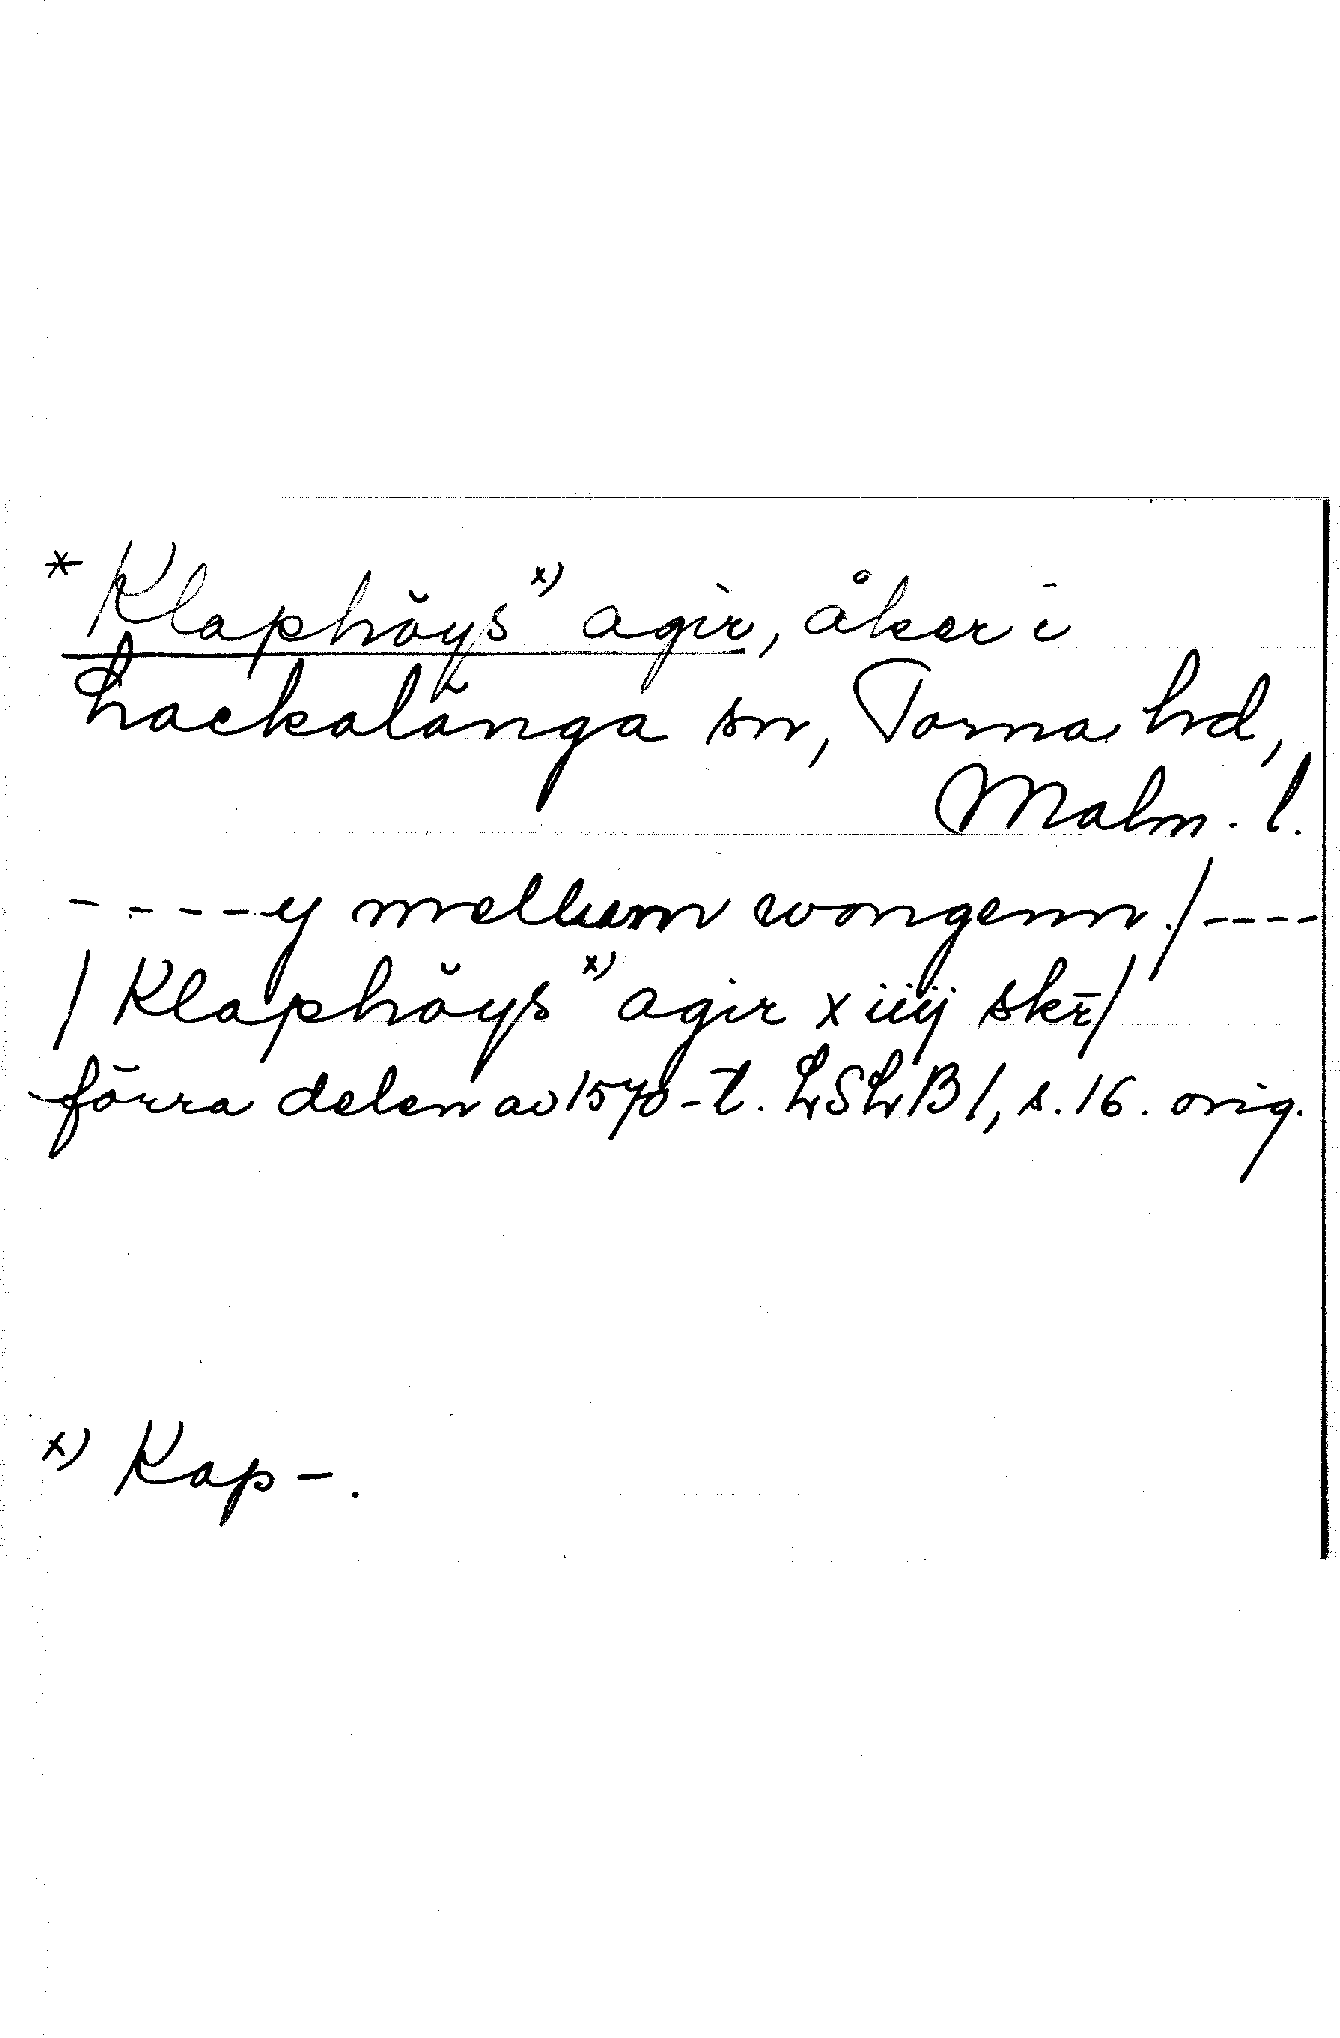 * Klaphöys x) agir, åker i
Lackalänga sn, Torna hd,
Malm. l.
----y mellum wongenn./----
/ Klaphöys x) agir x iiij skr̄/
förra delen av 1570-t. LSLB 1, s. 16. orig.
x) Kap-.